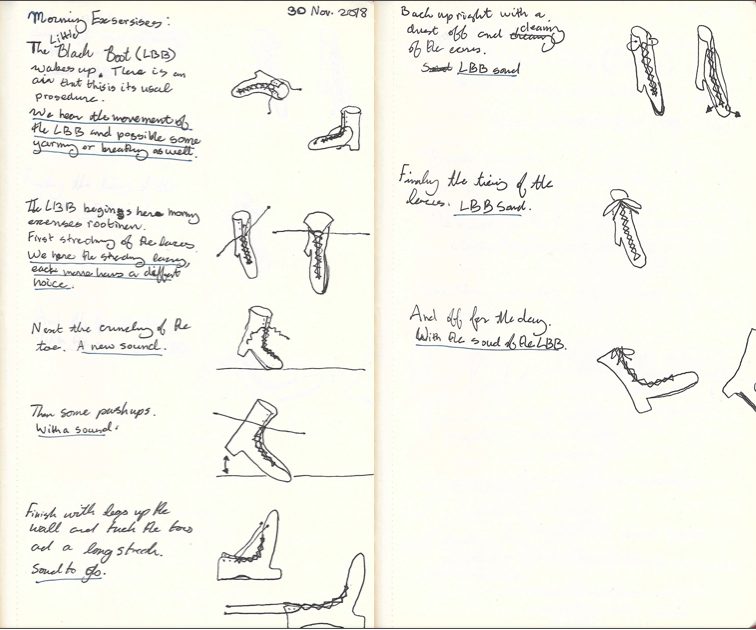 Morning Exsersises:
30 Nov. 2018
Little
The Black Boot (LBB)
wakes up. There is an
air that this is its usual
procedure.
We hear the movement of
the LBB and possible some
yarning or breathing as well.
The LBB begings here morning
exersises
First streching of the laces.
We here the streching lacing,
each move haves a diffent
noice.
Next the crunching of the
toe. A new sound.
Then some pushups.
With a sound.
Finish with legs up the
wall and tuck the toes
and a long strech.
Sound to go.
Back up right with a
dust off and cleaning
of the
LBB sound
Finaly the tieing of the
laces. LBB Sound.
And off for the day.
With the sound of the LBB.